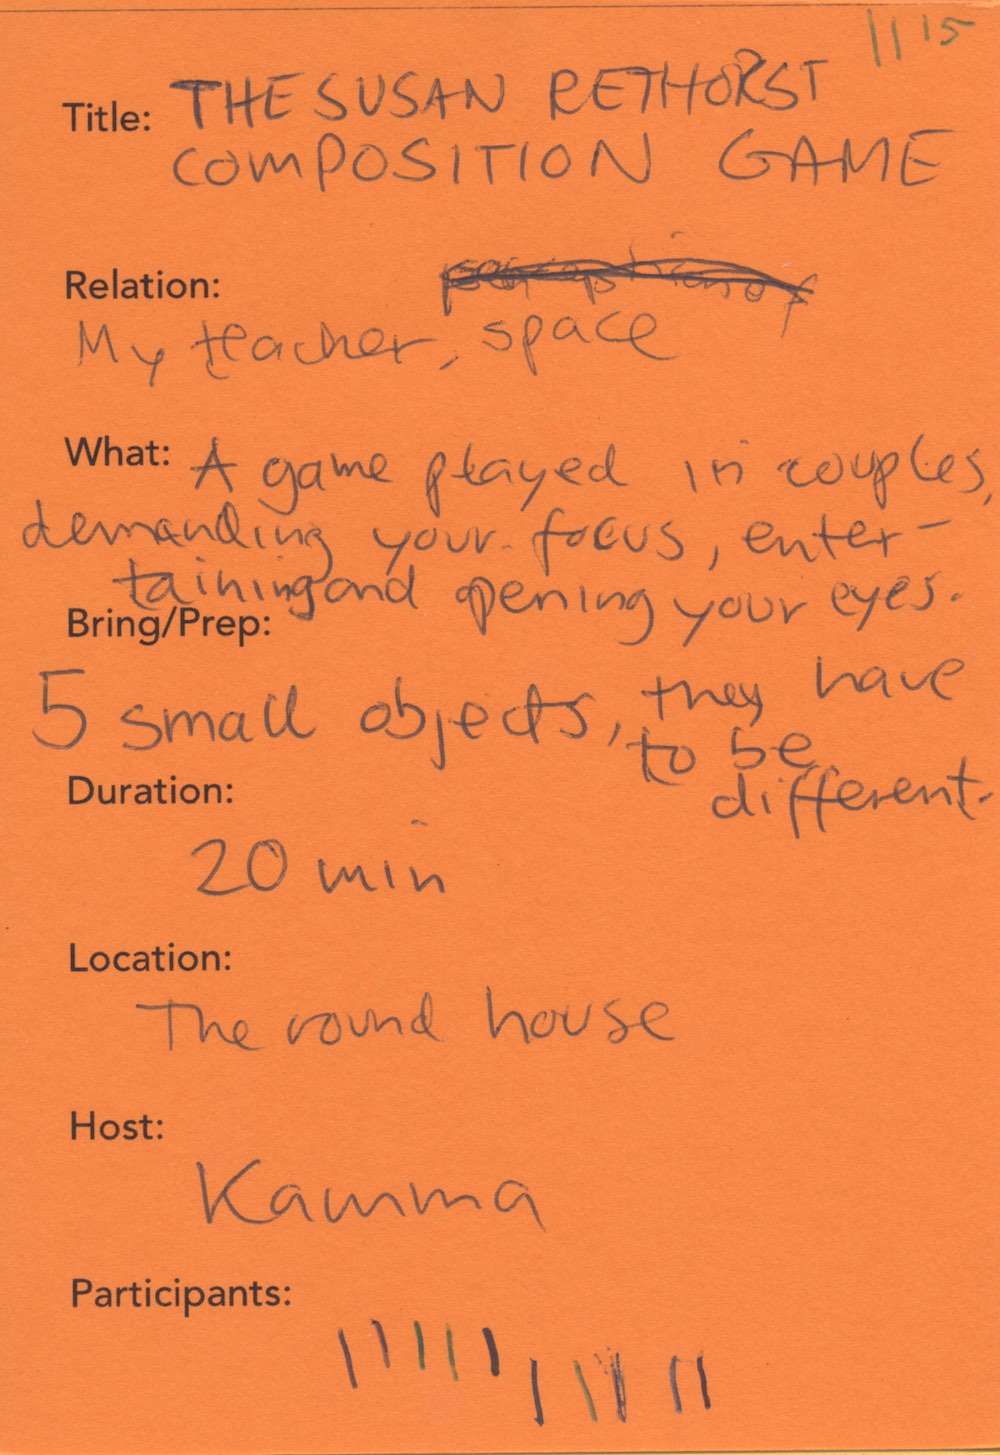 11 15
Title: THE SUSAN RETHORST
COMPOSITION GAME
Relation:
My teacher, space
What: A game played in couples,
demanding your focus, enter-
taining and opening your eyes.
Bring/Prep:
5 small objects, they have
to be
different.
Duration:
20 min
Location:
The round house
Host:
Kamma
Participants: